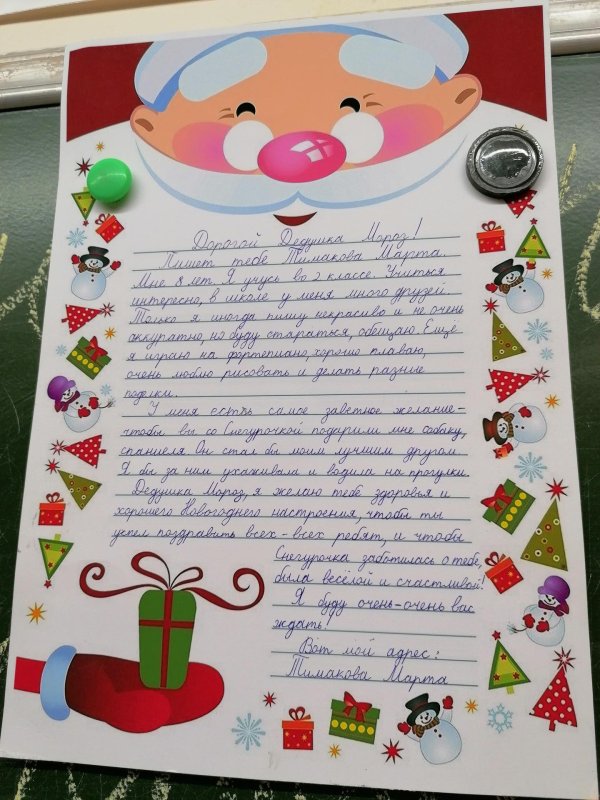 Дорогой Дедушка Мороз!
Пишет тебе Тимакова Марта.
Мне 8 лет. Я учусь во 2 классе. Учиться
интересно, в школе у меня много друзей.
Только я иногда пишу некрасиво и не очень
аккуратно, но буду стараться, обещаю. Ещё
я играю на фортепиано, хорошо плаваю,
очень люблю рисовать и делать разные
поделки.
У меня есть самое заветное желание-
чтобы вы со Снегурочкой подарили мне собаку,
спаниеля. Он стал бы моим лучшим другом.
Я бы за ним ухаживала и водила на прогулки.
Дедушка Мороз, я желаю тебе здоровья и
хорошего Новогоднего настроения, чтобы ты
успел поздравить всех-всех ребят, и чтобы
Снегурочка заботилась о тебе,
была весёлой и счастливой!
Я буду очень-очень вас
ждать!
Вот мой адрес:
Тимакова Марта